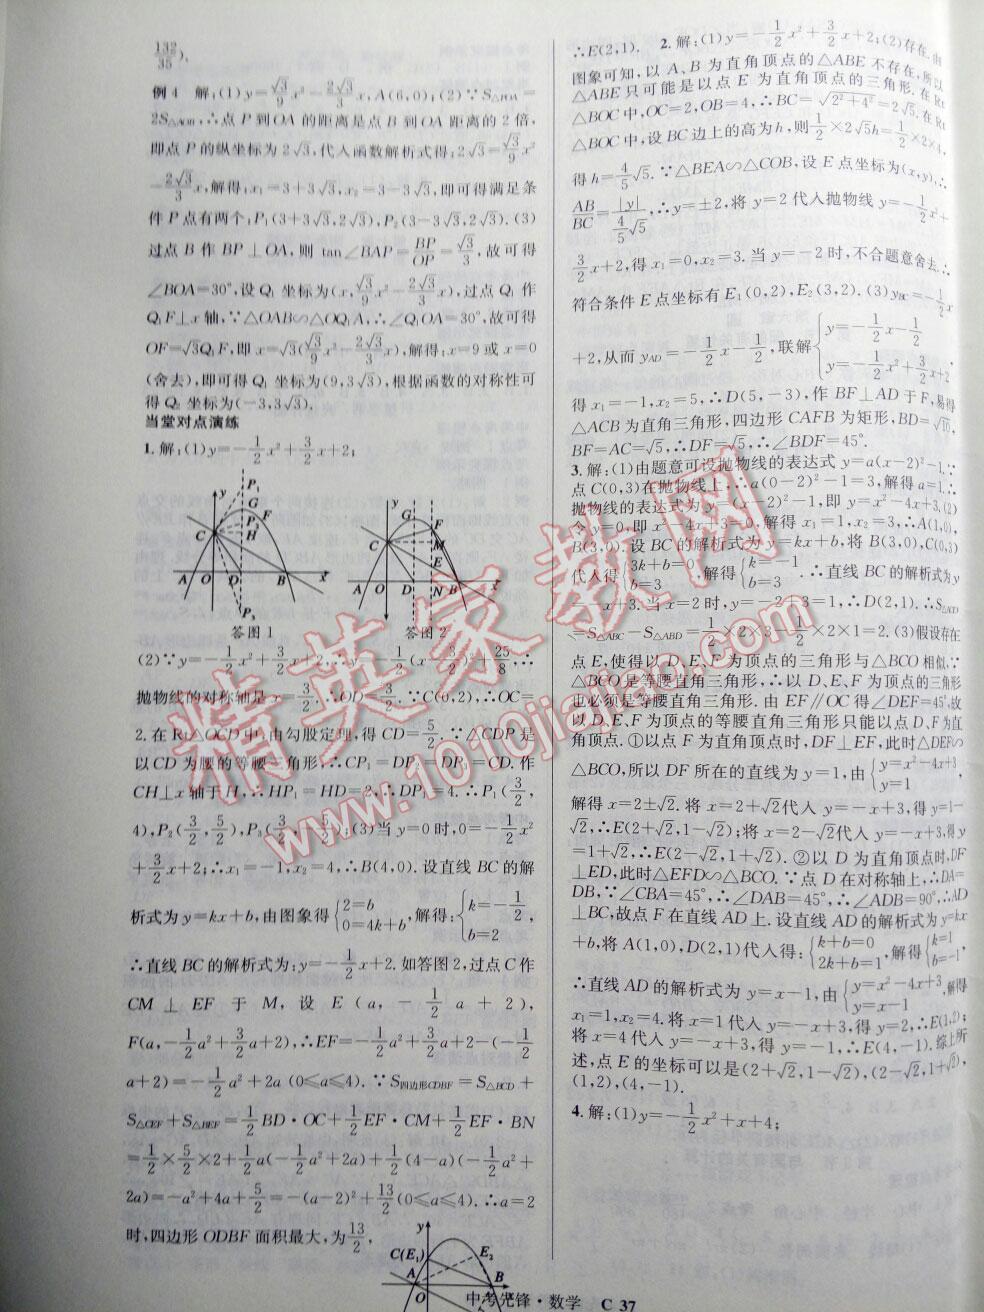 132/35).
例4 解:(1)y=√3/9x²-2√3/3x,A(6,0);(2)∵S△POA=
2S△AOB,∴点 P 到 OA 的距离是点 B 到 OA 距离的 2 倍,
即点 P 的纵坐标为 2√3,代入函数解析式得:2√3=√3/9x²
-2√3/3x,解得:x₁=3+3√3,x₂=3-3√3,即可得满足条
件 P 点有两个:P₁(3+3√3,2√3),P₂(3-3√3,2√3).(3)
过点 B 作 BP⊥OA,则 tan∠BAP=BP/OP=√3/3,故可得
∠BOA=30°,设 Q₁ 坐标为(x,√3/9x²-2√3/3x),过点 Q₁ 作
Q₁F⊥x 轴,∵△OAB∽△OQ₁A,∴∠Q₁OA=30°,故可得
OF=√3Q₁F,即 x=√3(√3/9x²-2√3/3x),解得:x=9 或 x=0
(舍去),即可得 Q₁ 坐标为(9,3√3),根据函数的对称性可
得 Q₂ 坐标为(-3,3√3).
当堂对点演练
1.解:(1)y=-1/2x²+3/2x+2;
y P₁ G F P₂ C H A O D B x P₃
答图 1
y G F C M E A O D N B x
答图 2
(2)∵y=-1/2x²+3/2x+2,∴y=-1/2(x-3/2)²+25/8,∴
抛物线的对称轴是 x=3/2.∴OD=3/2.∵C(0,2),∴OC=
2.在 Rt△OCD 中,由勾股定理,得 CD=5/2.∵△CDP 是
以 CD 为腰的等腰三角形,∴CP₁=DP₂=DP₃=CD.作
CH⊥x 轴于 H,∴HP₁=HD=2,∴DP₁=4.∴P₁(3/2,
4),P₂(3/2,5/2),P₃(3/2,-5/2);(3)当 y=0时,0=-1/2x²
+3/2x+2;∴x₁=-1,x₂=4,∴B(4,0).设直线 BC 的解
析式为 y=kx+b,由图象得{2=b 0=4k+b,解得:{k=-1/2, b=2
∴直线 BC 的解析式为:y=-1/2x+2.如答图 2,过点 C 作
CM⊥EF 于 M,设 E(a,-1/2a+2),
F(a,-1/2a²+3/2a+2),∴EF=-1/2a²+3/2a+2-(-1/2
a+2)=-1/2a²+2a (0≤a≤4).∵S四边形CDBF=S△BCD+
S△CEF+S△BEF=1/2BD·OC+1/2EF·CM+1/2EF·BN
=1/2×5/2×2+1/2a(-1/2a²+2a)+1/2(4-a)(-1/2a²+
2a)=-a²+4a+5/2=-(a-2)²+13/2(0≤a≤4).∴a=2
时,四边形 ODBF 面积最大,为13/2,
∴E(2,1). 2.解:(1)y=-1/2x²+3/2x+2;(2)存在.由
图象可知,以 A、B 为直角顶点的△ABE 不存在,所以
△ABE 只可能是以点 E 为直角顶点的三角形.在 Rt
△BOC 中,OC=2,OB=4,∴BC=√2²+4²=2√5.在 Rt
△BOC 中,设 BC 边上的高为 h,则1/2×2√5h=1/2×2×4,
得 h=4/5√5.∵△BEA∽△COB,设 E 点坐标为(x,y),∴
AB/BC=|y|/4/5√5,∴y=±2,将 y=2 代入抛物线 y=-1/2x²+
3/2x+2,得 x₁=0,x₂=3.当 y=-2 时,不合题意舍去.∴
符合条件 E 点坐标有 E₁(0,2),E₂(3,2).(3)yBC=-1/2x
+2,从而 yAD=-1/2x-1/2,联解{y=-1/2x-1/2 y=-1/2x²+3/2x+2,
得 x₁=-1,x₂=5,∴D(5,-3),作 BF⊥AD 于 F,易得
△ACB 为直角三角形,四边形 CAFB 为矩形,BD=√10,
BF=AC=√5,∴DF=√5,∴∠BDF=45°.
3.解:(1)由题意可设抛物线的表达式 y=a(x-2)²-1,∵
点 C(0,3)在抛物线上,∴a(0-2)²-1=3,解得 a=1.∴
抛物线的表达式为 y=(x-2)²-1,即 y=x²-4x+3.(2)
令 y=0,即 x²-4x+3=0,解得 x₁=1,x₂=3,∴A(1,0),
B(3,0).设 BC 的解析式为 y=kx+b,将 B(3,0),C(0,3)
代人得{3k+b=0 b=3 解得{k=-1 b=3.∴直线 BC 的解析式为 y
=-x+3.当 x=2 时,y=-2+3=1,∴D(2,1).∴S△ACD
=S△ABC-S△ABD=1/2×2×3-1/2×2×1=2.(3)假设存在
点 E,使得以 D、E、F 为顶点的三角形与△BCO 相似.∵
△BCO 是等腰直角三角形,∴以 D、E、F 为顶点的三角形
也必须是等腰直角三角形.由 EF∥OC 得∠DEF=45°,故
以 D、E、F 为顶点的等腰直角三角形只能以点 D、F 为直
角顶点.①以点 F 为直角顶点时,DF⊥EF,此时△DEF∽
△BCO,所以 DF 所在的直线为 y=1,由{y=x²-4x+3 y=1
解得 x=2±√2.将 x=2+√2代人 y=-x+3,得 y=1-
√2,∴E(2+√2,1-√2);将 x=2-√2代人 y=-x+3,得 y
=1+√2,∴E(2-√2,1+√2).②以 D 为直角顶点时,DF
⊥ED,此时△EFD∽△BCO.∵点 D 在对称轴上,∴DA=
DB,∵∠CBA=45°,∴∠DAB=45°,∴∠ADB=90°,∴AD
⊥BC,故点 F 在直线 AD 上.设直线 AD 的解析式为 y=kx
+b,将 A(1,0),D(2,1)代人得:{k+b=0 2k+b=1,解得{k=1, b=-1,
∴直线 AD 的解析式为 y=x-1,由{y=x²-4x+3, y=x-1 解得
x₁=1,x₂=4.将 x=1代人 y=-x+3,得 y=2,∴E(1,2);
将 x=4 代人 y=-x+3,得 y=-1,∴E(4,-1).综上所
述,点 E 的坐标可以是(2+√2,1-√2),(2-√2,1+√2),
(1,2),(4,-1).
4.解:(1)y=-1/2x²+x+4;
y C(E₁) E₂ A O B x
中考先锋·数学 C 37
精英家教网
www.1010jiajiao.com